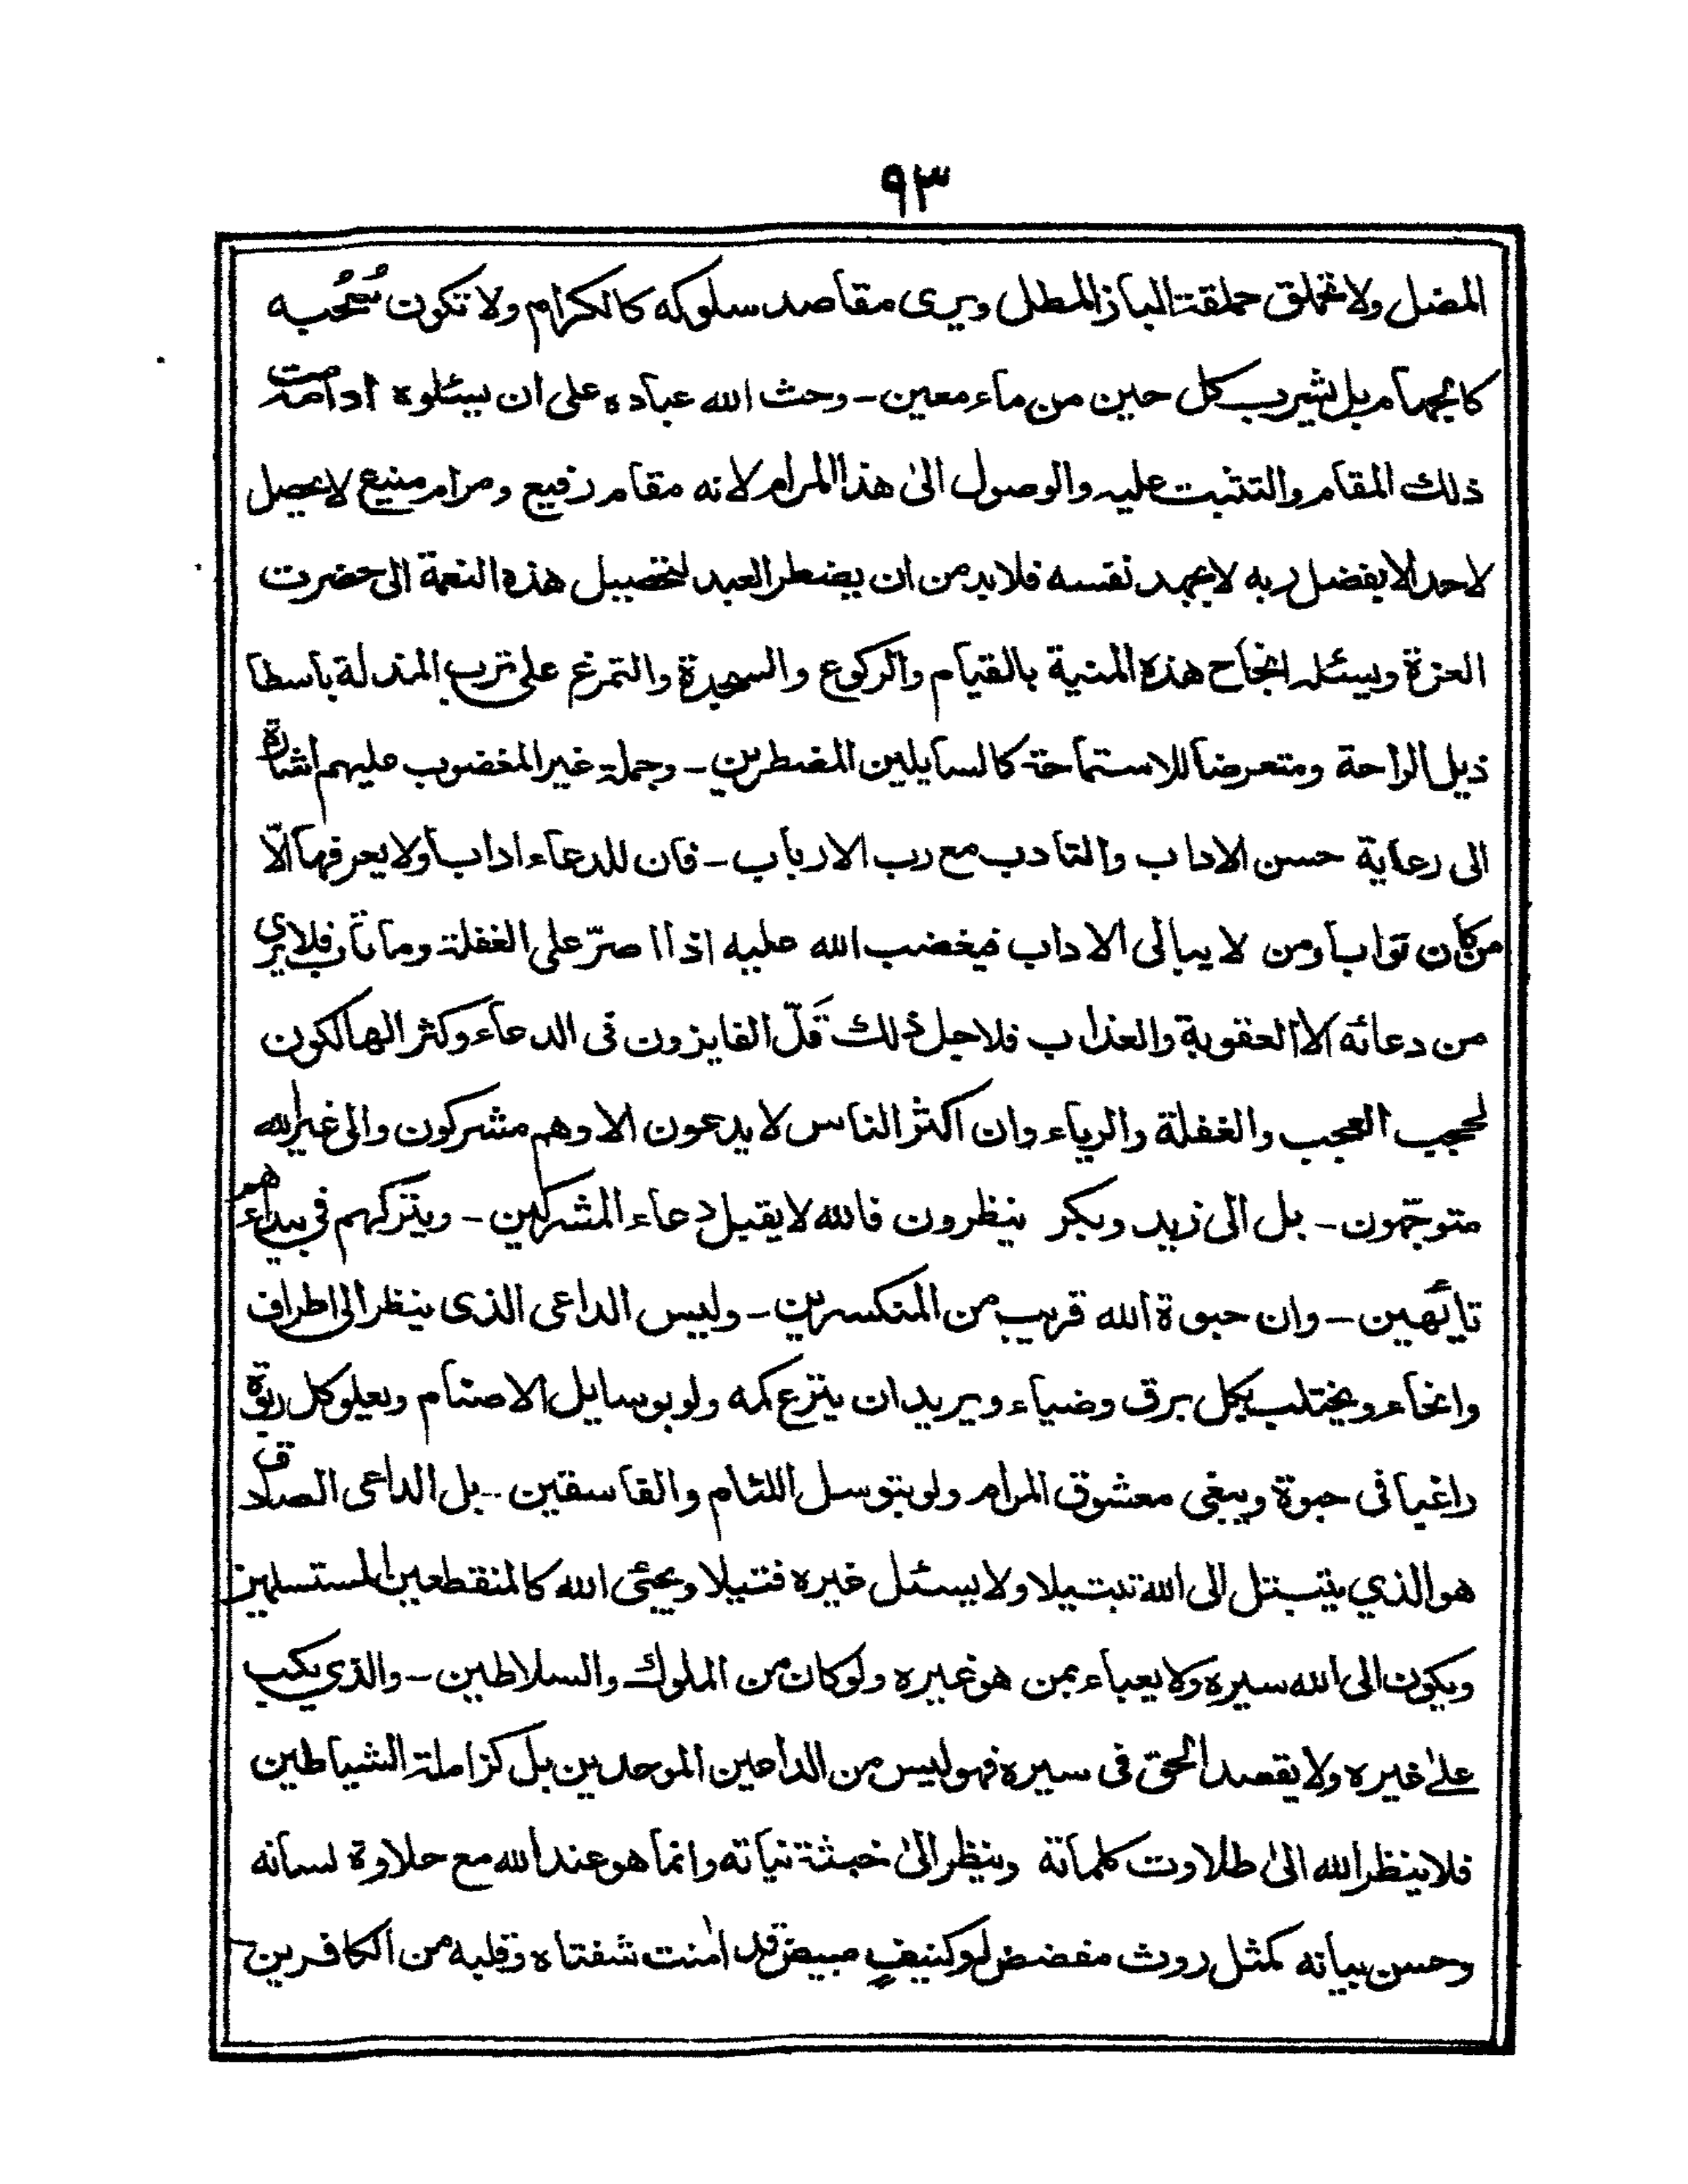 ٩٣
المضل ولا تحملق حملقة الباز المطل ويرى مقاصد سلوكه كالكرام ولا تكون سُحُبه
كالجهام بل يشرب كل حين من ماء معين – وحث الله عباده على ان يسئلوه ادامت
ذلك المقام والتثبت عليه والوصول الىٰ هذا المرام لانه مقام رفيع ومرام منيع لا يحصل
لاحد الا بفضل ربه لا بجهد نفسه فلابد من ان يضطر العبد لتحصيل هذه النعمة الى حضرت
العزة ويسئله انجاح هذه المنية بالقيام والركوع والسجدة والتمرغ على ترب المذلة باسطا
ذيل الراحة ومتعرضا للاستماحة كالسايلين المضطرين – وجملة غير المغضوب عليهم اشارة
الى رعاية حسن الاداب والتادب مع رب الارباب – فان للدعاء ادابا ولا يعرفها الّا
من كان توابا ومن لا يبالى الاداب فيغضب الله عليه اذا اصرّ على الغفلة وما تاب فلا يرى
من دعائه الا العقوبة والعذاب فلاجل ذلك قَلّ الفايزون فى الدعاء وكثر الهالكون
لحجب العجب والغفلة والرياء وان اكثر الناس لا يدعون الا وهم مشركون والى غير الله
متوجّهون – بل الى زيد وبكر ينظرون فالله لا يقبل دعاء المشركين – ويتركهم فى بيداءهم
تائهين – وان حبوة الله قريب من المنكسرين – وليس الداعى الذى ينظر الى اطراف
وانحاء ويختلب بكل برق وضياء ويريد ان يترع كمه ولو بوسايل الاصنام ويعلو كل ربوة
راغبا فى حبوة ويبغى معشوق المرام ولو بتوسل اللئام والفاسقين – بل الداعى الصادق
هو الذي يتبتل الى الله تبتيلا ولا يسئل غيره فتيلا ويجئى الله كالمنقطعين المستسلمين
ويكون الى الله سيره ولا يعباء بمن هو غيره ولو كان من الملوك والسلاطين – والذي يكب
علىٰ غيره ولا يقصد الحق فى سيره فهو ليس من الداعين الموحدين بل كزاملة الشياطين
فلا ينظر الله الىٰ طلاوت كلماته وينظر الىٰ خبثة نياته وانما هو عند الله مع حلاوة لسانه
وحسن بيانه كمثل روث مفضض او كنيفٍ مبيض قد اٰمنت شفتاه وقلبه من الكافرين –